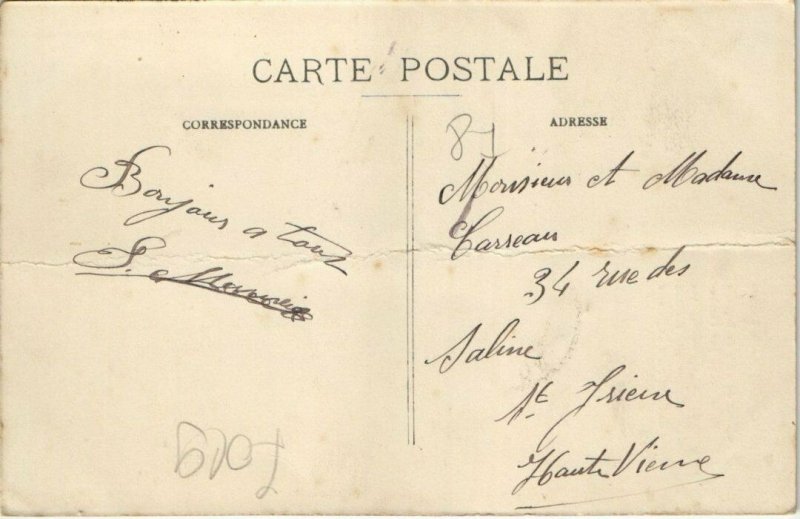 CARTE POSTALE
CORRESPONDANCE
ADRESSE
Bonjour a tout
S.
87
Monsieur et Madame
Carreau
34 rue des
Saline
St Yrieux
Haute Vienne